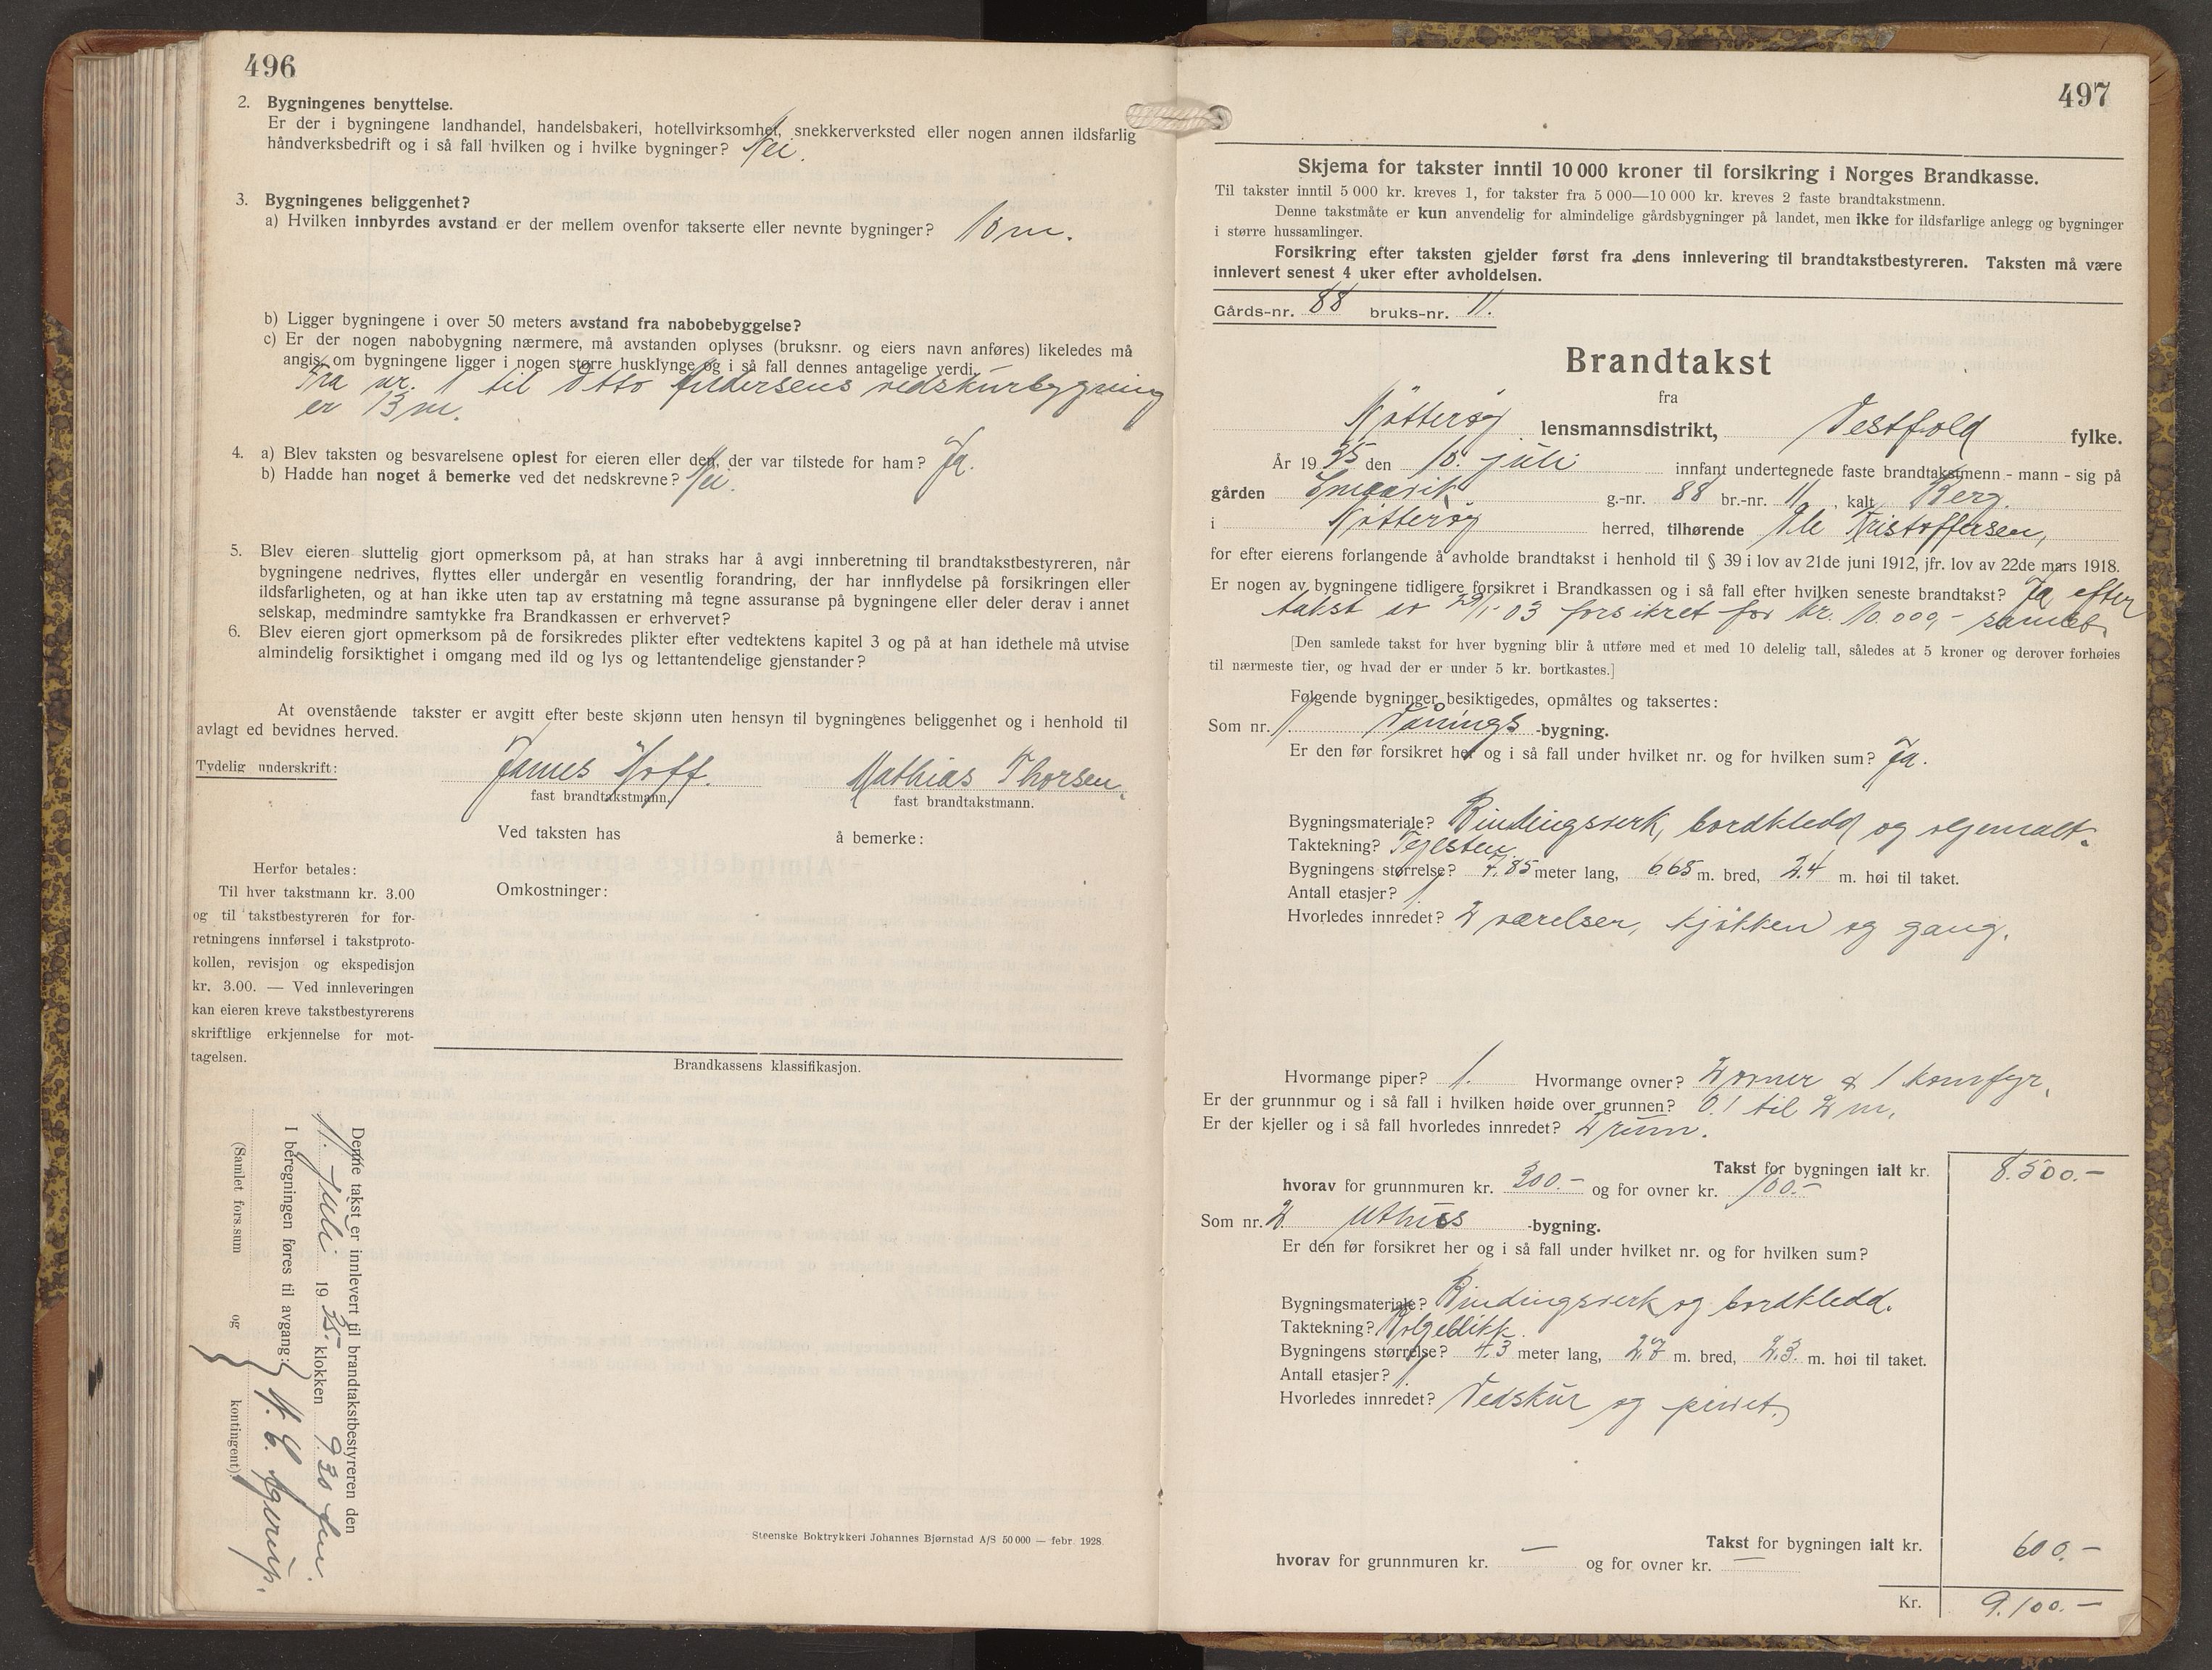 496
2. Bygningenes benyttelse.
Er der i bygningene landhandel, handelsbakeri, hotellvirksomhet, snekkerverksted eller nogen annen ildsfarlig
håndverksbedrift og i så fall hvilken og i hvilke bygninger? Nei.
3. Bygningenes beliggenhet?
a) Hvilken innbyrdes avstand er der mellem ovenfor takserte eller nevnte bygninger? 10 m.
b) Ligger bygningene i over 50 meters avstand fra nabobebyggelse?
c) Er der nogen nabobygning nærmere, må avstanden oplyses (bruksnr. og eiers navn anføres) likeledes må
angis, om bygningene ligger i nogen større husklynge og i så fall dennes antagelige verdi.
Fra nr. 1 til Otto Andersens vedskurbygning
er 13 m.
4. a) Blev taksten og besvarelsene oplest for eieren eller den, der var tilstede for ham? Ja.
b) Hadde han noget å bemerke ved det nedskrevne? Nei.
5. Blev eieren sluttelig gjort opmerksom på, at han straks har å avgi innberetning til brandtakstbestyreren, når
bygningene nedrives, flyttes eller undergår en vesentlig forandring, der har innflydelse på forsikringen eller
ildsfarligheten, og at han ikke uten tap av erstatning må tegne assuranse på bygningene eller deler derav i annet
selskap, medmindre samtykke fra Brandkassen er erhvervet?
6. Blev eieren gjort opmerksom på de forsikredes plikter efter vedtektens kapitel 3 og på at han idethele må utvise
almindelig forsiktighet i omgang med ild og lys og lettantendelige gjenstander?
At ovenstående takster er avgitt efter beste skjønn uten hensyn til bygningenes beliggenhet og i henhold til
avlagt ed bevidnes herved.
Tydelig underskrift: James Hoff. Mathias Thorsen.
fast brandtakstmann, fast brandtakstmann.
Ved taksten has å bemerke:
Omkostninger:
Herfor betales:
Til hver takstmann kr. 3.00
og til takstbestyreren for for-
retningens innførsel i takstproto-
kollen, revisjon og ekspedisjon
kr. 3.00. — Ved innleveringen
kan eieren kreve takstbestyrerens
skriftlige erkjennelse for mot-
tagelsen.
Brandkassens klassifikasjon.
Denne takst er innlevert til brandtakstbestyreren den
11. juli 1935 klokken 9.30 fm.
I beregningen føres til avgang:
(Samlet fors.sum og kontingent)
Steenske Boktrykkeri Johannes Bjørnstad A/S 50 000 — febr. 1928.
497
Skjema for takster inntil 10 000 kroner til forsikring i Norges Brandkasse.
Til takster inntil 5 000 kr. kreves 1, for takster fra 5 000—10 000 kr. kreves 2 faste brandtakstmenn.
Denne takstmåte er kun anvendelig for almindelige gårdsbygninger på landet, men ikke for ildsfarlige anlegg og bygninger
i større hussamlinger.
Forsikring efter taksten gjelder først fra dens innlevering til brandtakstbestyreren. Taksten må være
innlevert senest 4 uker efter avholdelsen.
Gårds-nr. 88 bruks-nr. 11.
Brandtakst
fra
Nøtterøy lensmannsdistrikt, Vestfold fylke.
År 1935 den 10. juli innfant undertegnede faste brandtakstmenn - mann - sig på
gården Smaavik g.-nr. 88 br.-nr. 11, kalt Berg
i Nøtterøy herred, tilhørende Ole Kristoffersen,
for efter eierens forlangende å avholde brandtakst i henhold til § 39 i lov av 21de juni 1912, jfr. lov av 22de mars 1918.
Er nogen av bygningene tidligere forsikret i Brandkassen og i så fall efter hvilken seneste brandtakst? Ja, efter
takst av 29/1-03 forsikret for kr. 10.000,-
[Den samlede takst for hver bygning blir å utføre med et med 10 delelig tall, således at 5 kroner og derover forhøies
til nærmeste tier, og hvad der er under 5 kr. bortkastes.]
Følgende bygninger besiktigedes, opmåltes og taksertes:
Som nr. 1. Vånings -bygning.
Er den før forsikret her og i så fall under hvilket nr. og for hvilken sum? Ja.
Bygningsmateriale? Bindingsverk, bordkledd og oljemalt.
Taktekning? Teglsten.
Bygningens størrelse? 7.85 meter lang, 6.65 m. bred, 2.4 m. høi til taket.
Antall etasjer? 1.
Hvorledes innredet? 2 værelser, kjøkken og gang.
Hvormange piper? 1. Hvormange ovner? 2 ovner & 1 komfyr.
Er der grunnmur og i så fall i hvilken høide over grunnen? 0.1 til 2 m.
Er der kjeller og i så fall hvorledes innredet? 2 rum.
Takst for bygningen ialt kr. 8.500.-
hvorav for grunnmuren kr. 300.- og for ovner kr. 100.-
Som nr. 2. Uthus -bygning.
Er den før forsikret her og i så fall under hvilket nr. og for hvilken sum?
Bygningsmateriale? Bindingsverk og bordkledd.
Taktekning? Bølgeblikk.
Bygningens størrelse? 4.3 meter lang, 2.7 m. bred, 2.3. m. høi til taket.
Antall etasjer? 1.
Hvorledes innredet? Vedskur og privet.
Takst for bygningen ialt kr. 600.-
hvorav for grunnmuren kr. — og for ovner kr. —
Kr. 9.100.-